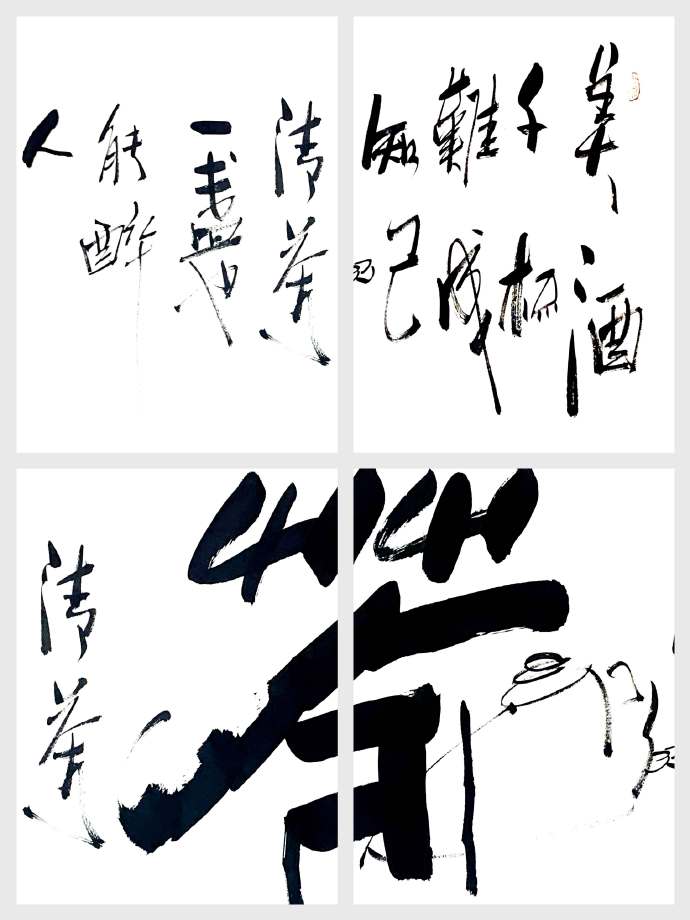 清茶
一壺也
能醉
人
美酒
千杯
難成
知己
清茶